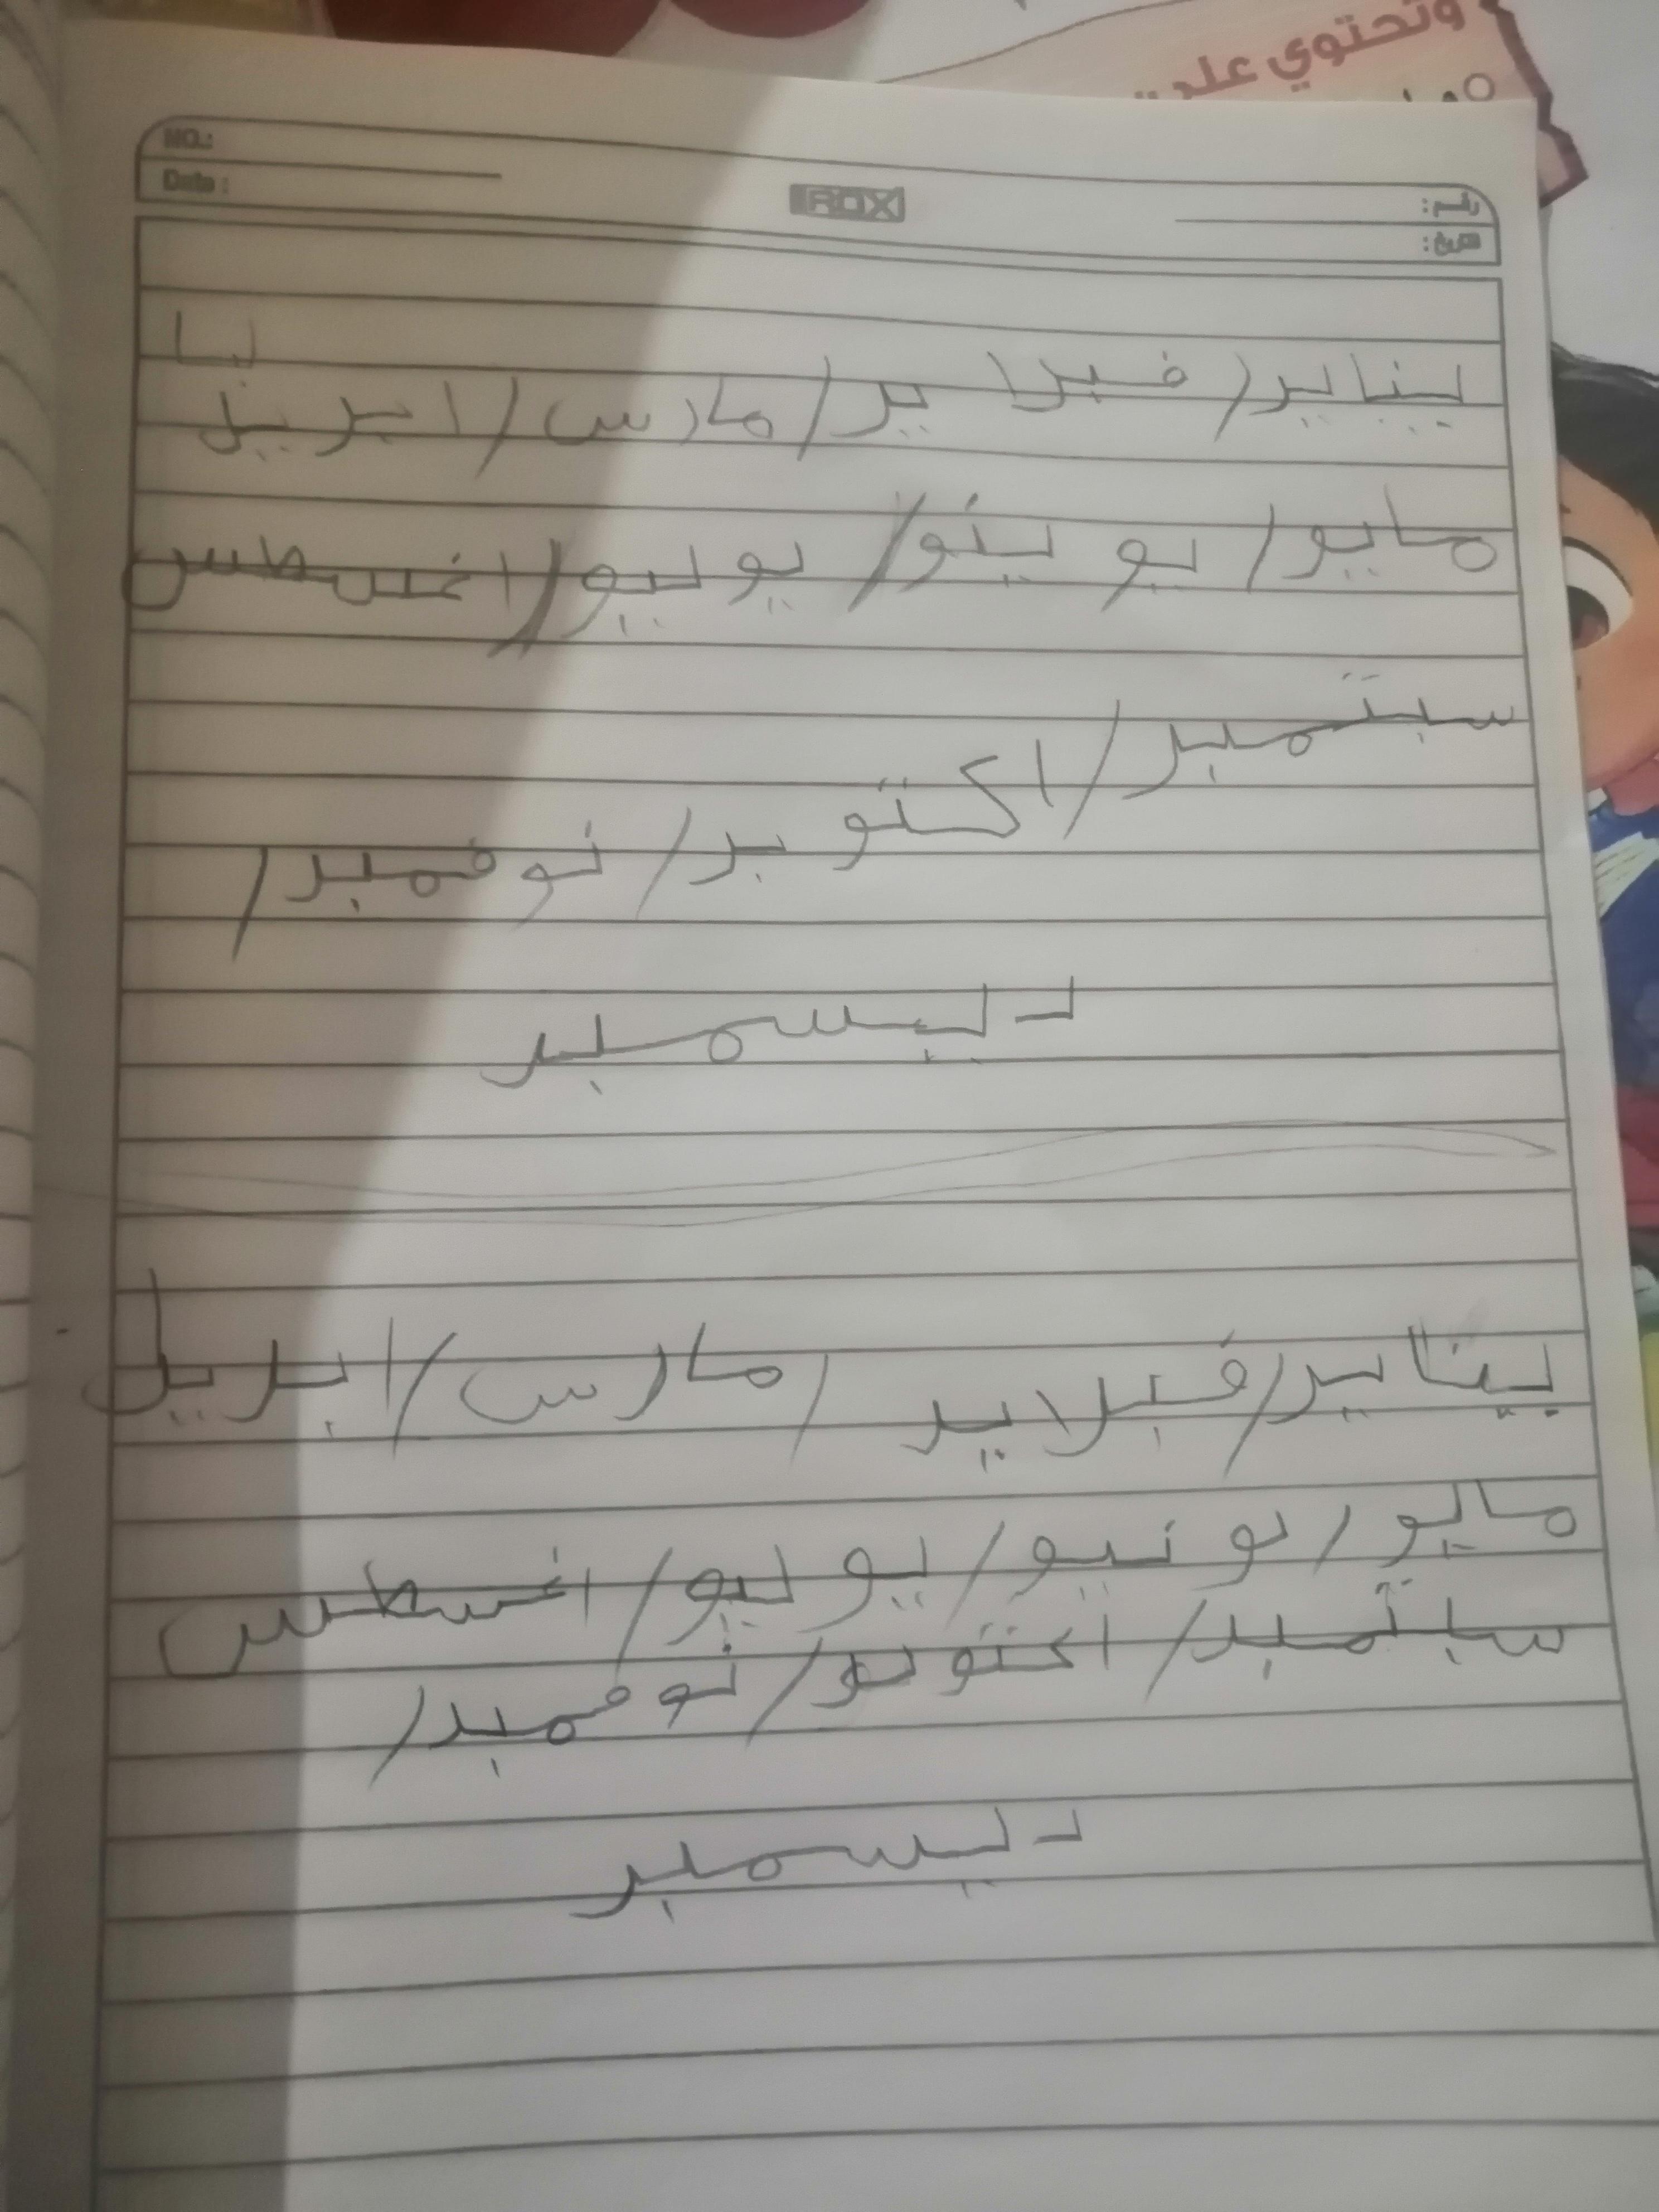 وتحتوي على
NO.:
Date:
ROX
رقم:
تاريخ:
يناير/ فبرا ير/ مارس/ ابريل
مايو/ يو ينو/ يوليو/ اغسطس
سبتمبر/ اكتوبر/ نوفمبر/
ديسمبر
يناير/ فبلاير/ مارس/ ابريل
مايو/ يونيو/ يوليو/ اغسطس
سبتمبر/ اكتوبر/ نوفمبر/
ديسمبر